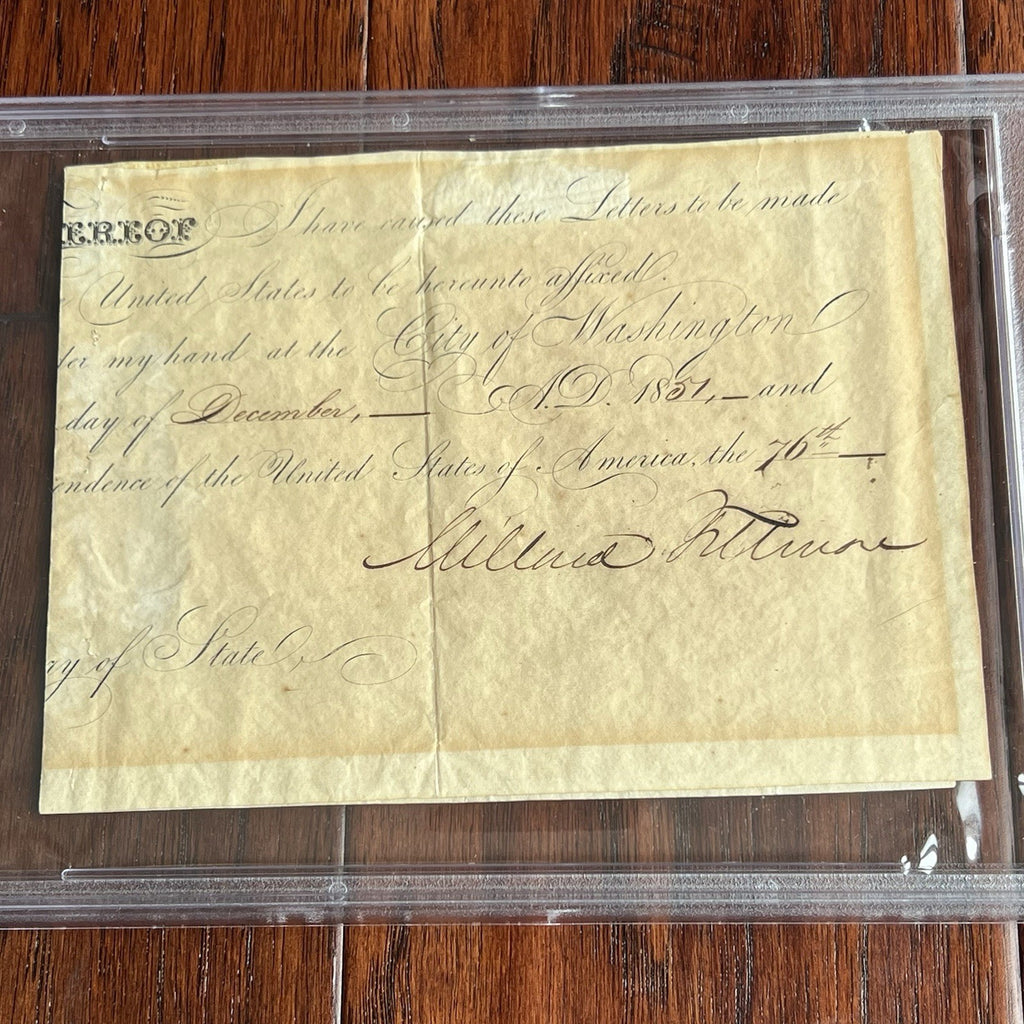 EREOF I have caused these Letters to be made
United States to be hereunto affixed.
der my hand at the City of Washington
day of December, — A.D. 1851, — and
endence of the United States of America, the 76th —
Millard Fillmore
ry of State,